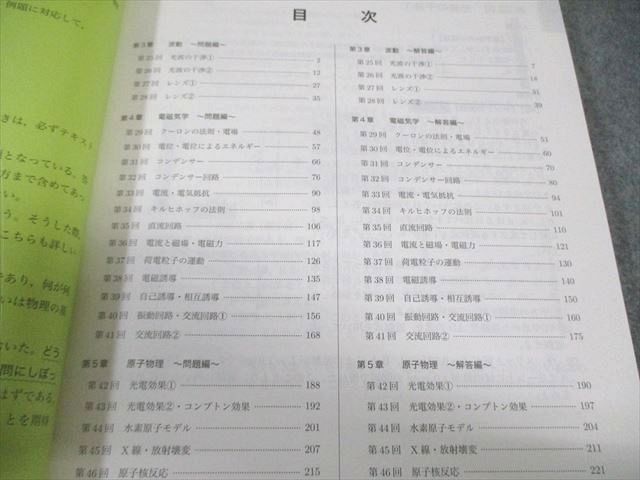 例題に対応して,
きは, 必ずテキスト
となっている.
方まで含めてあっ
う. そうした際,
こちらも詳しい
であり, 何が何
いは物理の基
おいた. どう
問にしぼっ
はずである.
とを期待
目 次
第3章 波動 〜問題編〜
第25回 光波の干渉① 2
第26回 光波の干渉② 12
第27回 レンズ① 27
第28回 レンズ② 35
第4章 電磁気学 〜問題編〜
第29回 クーロンの法則・電場 48
第30回 電位・電位によるエネルギー 57
第31回 コンデンサー 66
第32回 コンデンサー回路 76
第33回 電流・電気抵抗 90
第34回 キルヒホッフの法則 98
第35回 直流回路 106
第36回 電流と磁場・電磁力 117
第37回 荷電粒子の運動 126
第38回 電磁誘導 135
第39回 自己誘導・相互誘導 147
第40回 振動回路・交流回路① 156
第41回 交流回路② 168
第5章 原子物理 〜問題編〜
第42回 光電効果① 188
第43回 光電効果②・コンプトン効果 192
第44回 水素原子モデル 201
第45回 X線・放射壊変 207
第46回 原子核反応 215
第3章 波動 〜解答編〜
第25回 光波の干渉① 7
第26回 光波の干渉② 18
第27回 レンズ① 31
第28回 レンズ② 39
第4章 電磁気学 〜解答編〜
第29回 クーロンの法則・電場 51
第30回 電位・電位によるエネルギー 60
第31回 コンデンサー 70
第32回 コンデンサー回路 80
第33回 電流・電気抵抗 94
第34回 キルヒホッフの法則 101
第35回 直流回路 110
第36回 電流と磁場・電磁力 121
第37回 荷電粒子の運動 130
第38回 電磁誘導 140
第39回 自己誘導・相互誘導 150
第40回 振動回路・交流回路① 160
第41回 交流回路② 175
第5章 原子物理 〜解答編〜
第42回 光電効果① 190
第43回 光電効果②・コンプトン効果 197
第44回 水素原子モデル 204
第45回 X線・放射壊変 211
第46回 原子核反応 221